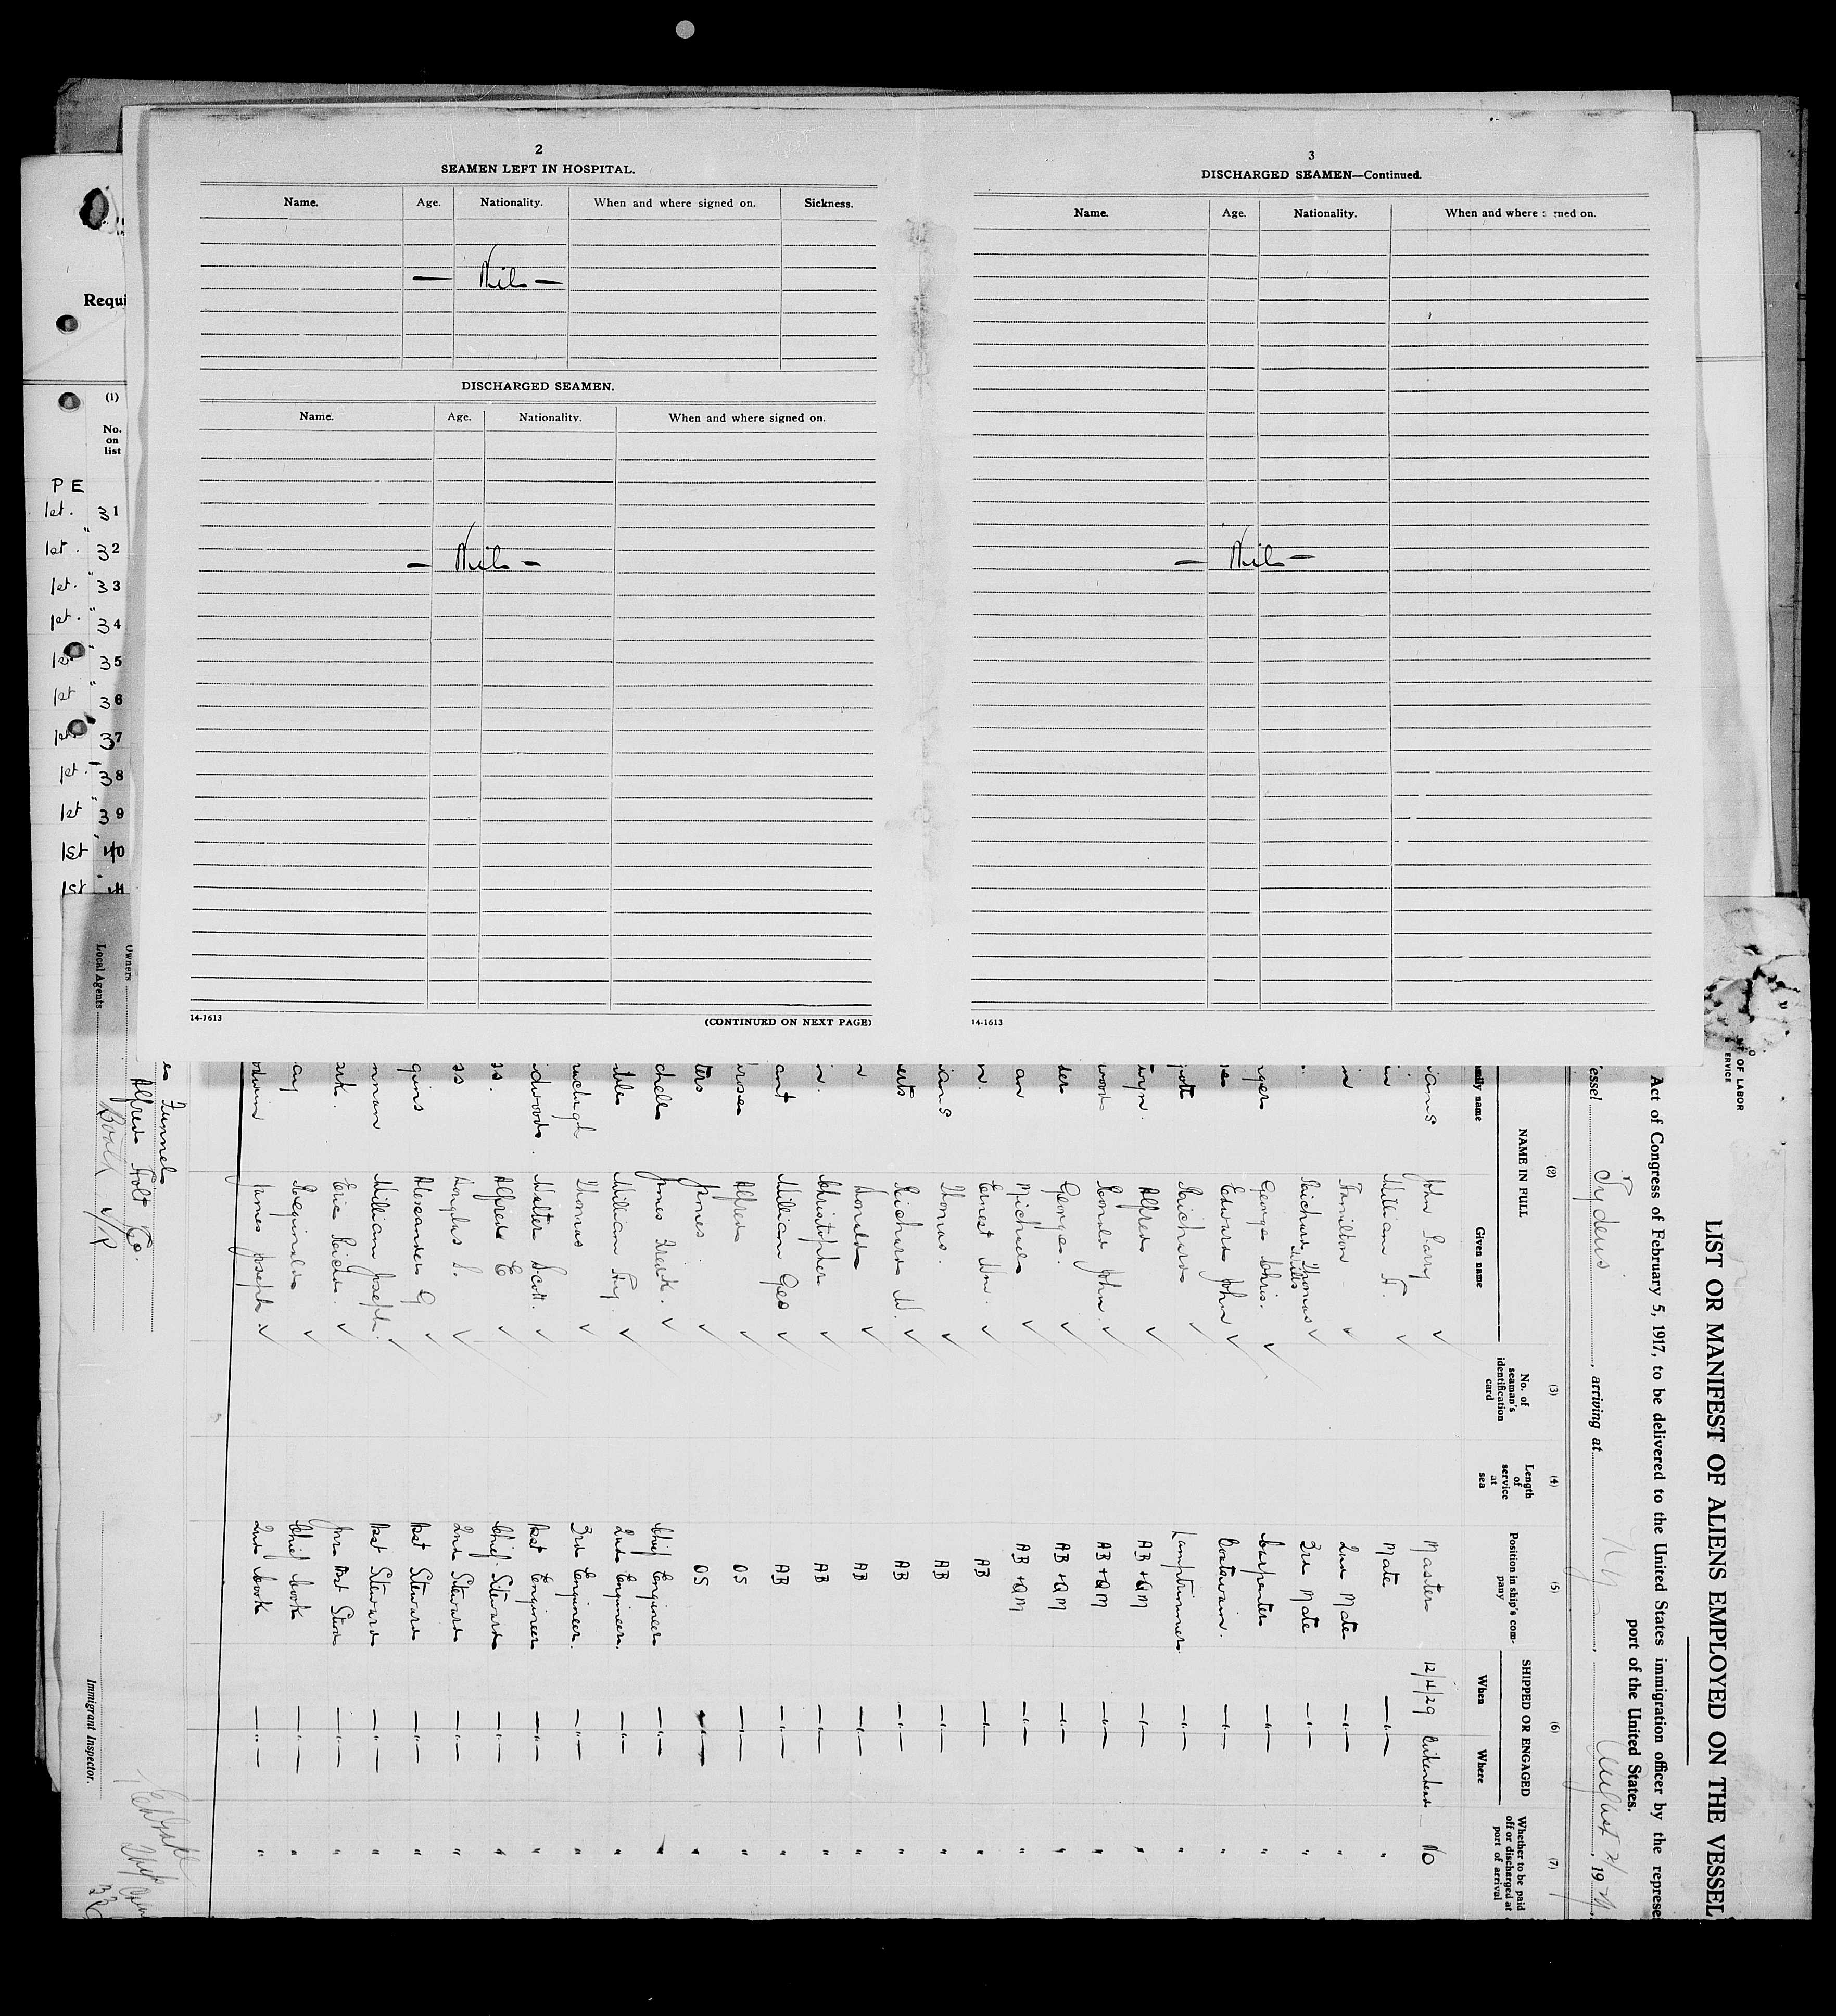 2
SEAMEN LEFT IN HOSPITAL.
Name. Age. Nationality. When and where signed on. Sickness.
— Nil —
DISCHARGED SEAMEN.
Name. Age. Nationality. When and where signed on.
— Nil —
14-1613 (CONTINUED ON NEXT PAGE)
3
DISCHARGED SEAMEN—Continued.
Name. Age. Nationality. When and where ned on.
— Nil —
14-1613
Requi
(1)
No.
on
list
P E
1st. " 31
1st. " 32
1st. " 33
1st. " 34
1st " 35
1st " 36
1st " 37
1st. " 38
1st " 39
1st " 40
1st " 41
OF LABOR
ERVICE
LIST OR MANIFEST OF ALIENS EMPLOYED ON THE VESSEL
Act of Congress of February 5, 1917, to be delivered to the United States immigration officer by the represe
port of the United States.
essel Tydeus, arriving at N Y, August 2/, 1929,
(2) (3) (4) (5) (6) (7)
NAME IN FULL
Given name
No. of seaman's identification card
Length of service at sea
Position in ship's company
SHIPPED OR ENGAGED
When Where
Whether to be paid off or discharged at port of arrival
iams John Parry ✓ Master 12/4/29 Birkenhead No
William F. ✓ Mate — " — "
Hamilton ✓ 2nd Mate — " — "
Richard Thomas ✓ 3rd Mate — " — "
George Chris. ✓ Carpenter — " — "
Edward John ✓ Boatswain. — " — "
Richard ✓ Lamptrimmer — " — "
Alfred ✓ AB + QM — " — "
wood Ronald John ✓ AB + QM — " — "
der George. ✓ AB + QM — " — "
an Michael ✓ AB + QM — " — "
n. Ernest Wm. ✓ AB — " — "
iams Thomas. ✓ AB — " — "
erts Richard W. ✓ AB — " — "
n Donald ✓ AB — " — "
n. Christopher ✓ AB — " — "
ant William Geo ✓ AB — " — "
Alfred ✓ OS — " — "
ters James ✓ OS — " — "
chell James Fredk. ✓ Chief Engineer — " — "
ble William Hy. ✓ 2nd Engineer. — " — "
Thomas ✓ 3rd Engineer. — " — "
dwood. Walter Scott. ✓ Asst Engineer — " — "
ss. Alfred E ✓ Chief Steward — " — "
ss Douglas S. ✓ 2nd Steward — " — "
gins Alexander G ✓ Asst Steward — " — "
nman William Joseph. ✓ Asst Steward — " — "
ark. Eric ✓ — " — "
ay Reginald ✓ Chief Cook — " — "
James Joseph ✓ 2nd Cook — " — "
Funnel
Owners Alfred Holt & Co.
Local Agents
Immigrant Inspector.